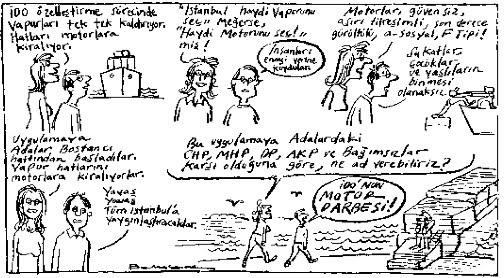 İDO özelleştirme süresinde
vapurları tek tek kaldırıyor.
Hatları motorlara
kiralıyor.
"İstanbul haydi Vapurunu
seç" Meğerse,
"Haydi Motorunu seç!"
miş!
İnsanları
enayi yerine
koydular!
Motorlar, güvensiz,
aşırı titreşimli, son derece
gürültülü, a-sosyal, F Tipi!
Sakatlar,
çocuklar
ve yaşlıların
binmesi
olanaksız.
Uygulamaya
Adalar, Bostancı
hattından başladılar.
Vapur hatlarını
motorlara kiralıyorlar.
Yavaş
Yavaş
Tüm İstanbul'a
yaygınlaştıracaklar.
Bu uygulamaya
CHP, MHP, DP,
karşı olduğuna
Adalardaki
AKP ve Bağımsızlar
göre, ne ad verebiliriz?
İDO'NUN
MOTOR
DARBESİ!